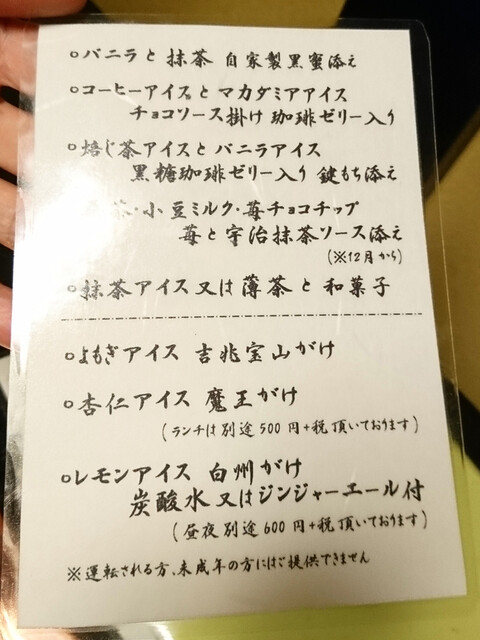 ○バニラと抹茶 自家製黒蜜添え
○コーヒーアイスとマカダミアアイス
チョコソース掛け 珈琲ゼリー入り
○焙じ茶アイスとバニラアイス
黒糖珈琲ゼリー入り 鍵もち添え
茶・小豆ミルク・苺チョコチップ
苺と宇治抹茶ソース添え
(※12月から)
○抹茶アイス又は薄茶と和菓子
○よもぎアイス 吉兆宝山がけ
○杏仁アイス 魔王がけ
(ランチは別途500円+税頂いております)
○レモンアイス 白州がけ
炭酸水又はジンジャーエール付
(昼夜別途600円+税頂いております)
※運転される方、未成年の方にはご提供できません